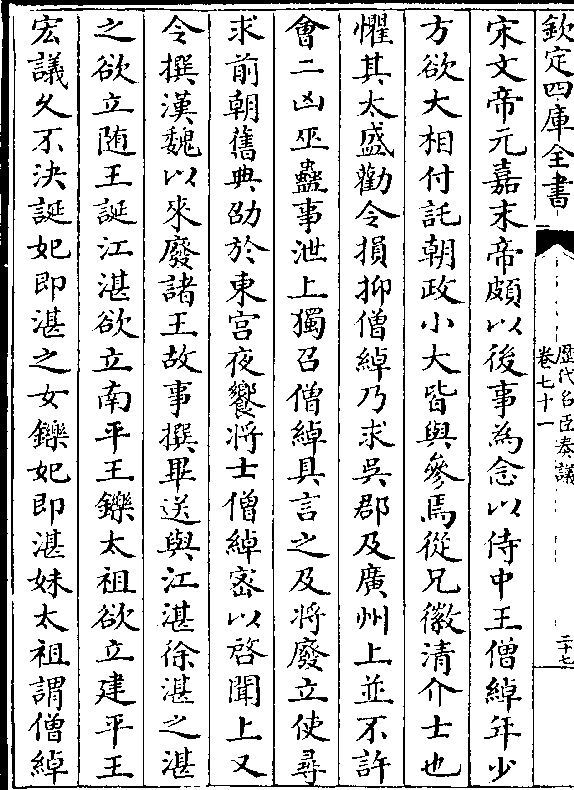 欽定四庫全書
歷代名臣奏議
卷七十一
二十七
宋文帝元嘉末帝頗以後事為念以侍中王僧綽年少
方欲大相付託朝政小大皆與參焉從兄徽清介士也
懼其太盛勸令損抑僧綽乃求吳郡及廣州上並不許
會二凶巫蠱事泄上獨召僧綽具言之及將廢立使尋
求前朝舊典劭於東宮夜饗將士僧綽密以啓聞上又
令撰漢魏以來廢諸王故事撰畢送與江湛徐湛之湛
之欲立随王誕江湛欲立南平王鑠太祖欲立建平王
宏議久不決誕妃即湛之女鑠妃即湛妹太祖謂僧綽